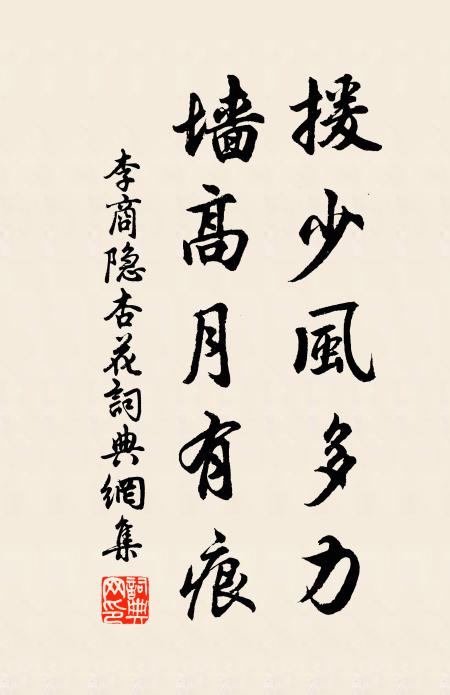 援少風多力
墙高月有痕
李商隐杏花詞典網集
詞典網印